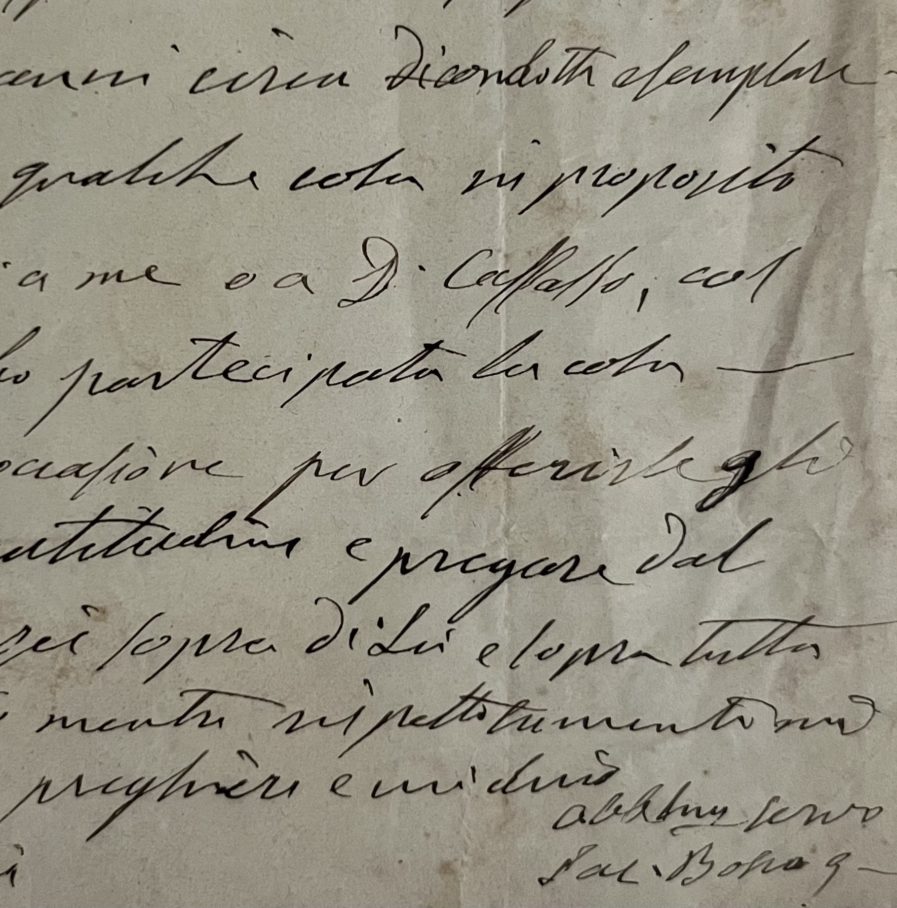 anni circa di condotta esemplare
qualche cosa in proposito
a me o a D. Caffasso, col
partecipata la cosa —
occasione per offerirle gli
atitudine e pregare dal
sopra di Lei e sopra tutta
mentre rispettosamente mi
preghiere e mi dico
obbl.mo servo
Sac. Bosco G